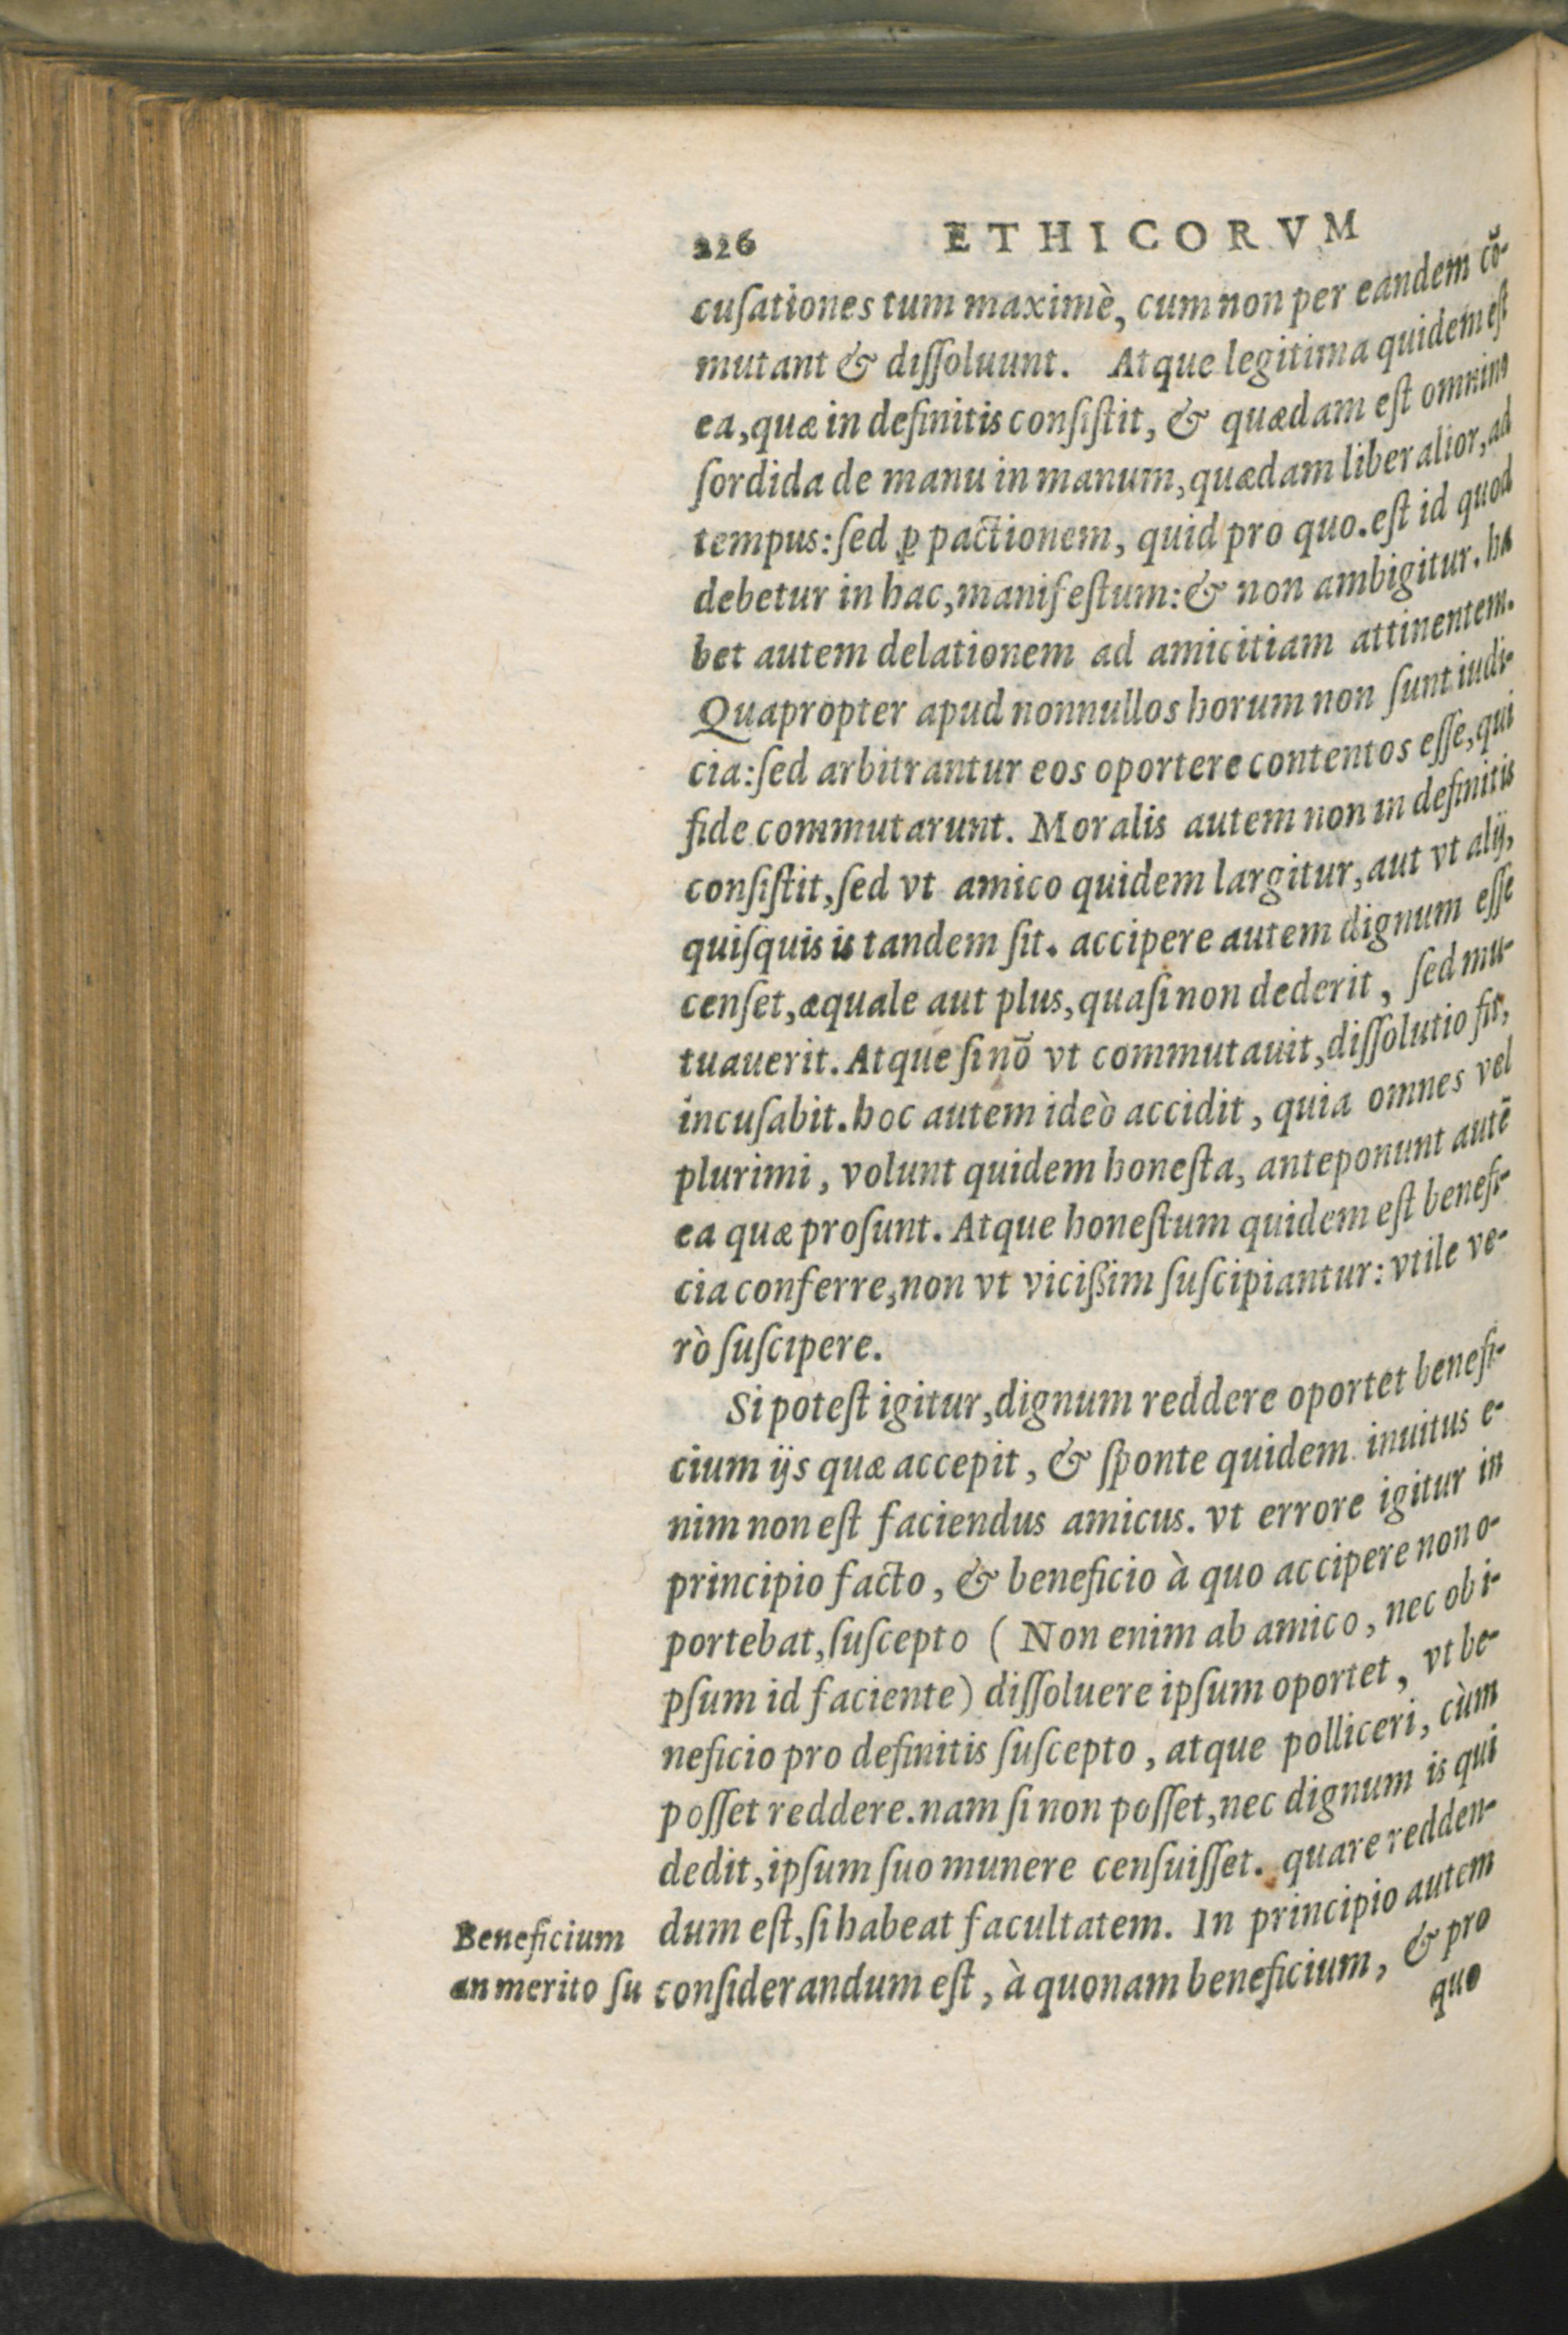 226 ETHICORVM
cuſationes tum maximè, cum non per eandem cō-
mutant & diſſoluunt. Atque legitima quidem eſt
ea, quæ in definitis conſiſtit, & quædam eſt omnino
ſordida de manu in manum, quædam liberalior, ad
tempus: ſed ꝑ pactionem, quid pro quo. eſt id quod
debetur in hac, manifeſtum: & non ambigitur. ha
bet autem delationem ad amicitiam attinentem.
Quapropter apud nonnullos horum non ſunt iudi-
cia: ſed arbitrantur eos oportere contentos eſſe, qui
fide commutarunt. Moralis autem non in definitis
conſiſtit, ſed vt amico quidem largitur, aut vt alij,
quiſquis is tandem ſit. accipere autem dignum eſſe
cenſet, æquale aut plus, quaſi non dederit, ſed mu-
tuauerit. Atque ſi nō vt commutauit, diſſolutio fit,
incuſabit. hoc autem ideò accidit, quia omnes vel
plurimi, volunt quidem honeſta, anteponunt autē
ea quæ proſunt. Atque honeſtum quidem eſt benefi-
cia conferre, non vt viciſsim ſuſcipiantur: vtile ve-
rò ſuſcipere.
Si poteſt igitur, dignum reddere oportet benefi-
cium ijs quæ accepit, & ſponte quidem inuitus e-
nim non eſt faciendus amicus. vt errore igitur in
principio facto, & beneficio à quo accipere non o-
portebat, ſuſcepto ( Non enim ab amico, nec ob i-
pſum id faciente) diſſoluere ipſum oportet, vt be-
neficio pro definitis ſuſcepto, atque polliceri, cùm
poſſet reddere. nam ſi non poſſet, nec dignum is qui
dedit, ipſum ſuo munere cenſuiſſet. quare redden-
dum eſt, ſi habeat facultatem. In principio autem
conſiderandum eſt, à quonam beneficium, & pro
quo
Beneficium
an merito ſu